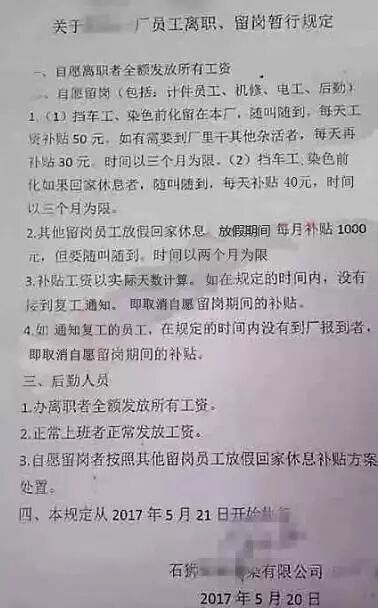 关于 厂员工离职、留岗暂行规定
一、自愿离职者全额发放所有工资
二、自愿留岗（包括：计件员工、机修、电工、后勤）
1.（1）挡车工、染色前化留在本厂，随叫随到，每天工
资补贴 50 元。如有需要到厂里干其他杂活者，每天再
补贴 30 元。时间以三个月为限。（2）挡车工、染色前
化如果回家休息者，随叫随到，每天补贴 40元，时间
以三个月为限。
2.其他留岗员工放假回家休息，放假期间 每月补贴 1000
元，但要随叫随到。时间以两个月为限
3.补贴工资以实际天数计算。如在规定的时间内，没有
接到复工通知。即取消自愿留岗期间的补贴。
4.如 通知复工的员工，在规定的时间内没有到厂报到者，
即取消自愿留岗期间的补贴。
三、后勤人员
1.办离职者全额发放所有工资。
2.正常上班者正常发放工资。
3.自愿留岗者按照其他留岗员工放假回家休息补贴方案
处置。
四、本规定从 2017 年 5 月 21 日开始
石狮 染有限公司
2017 年 5 月 20 日